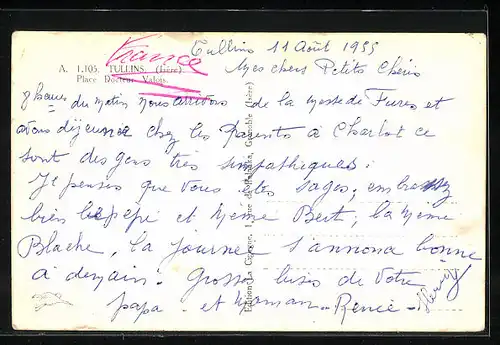 France
Tullins 11 Août 1955
A. 1.105. TULLINS. (Isère).
Place Docteur Valois.
Mes chers Petits Chéris
9 heures du matin nous arrivons de la messe de Fures et
avons déjeuner chez les Parents à Charlot ce
sont des gens très simpathiques.
Je penses que vous êtes sages, embrassez
bien le pépé et Mémé Bert, la Mémé
Blache, la journée s'annonça bonne
à demain. Grosse bises de votre
papa et Maman - Renée -
Edition La Cigogne
Grenoble (Isère)